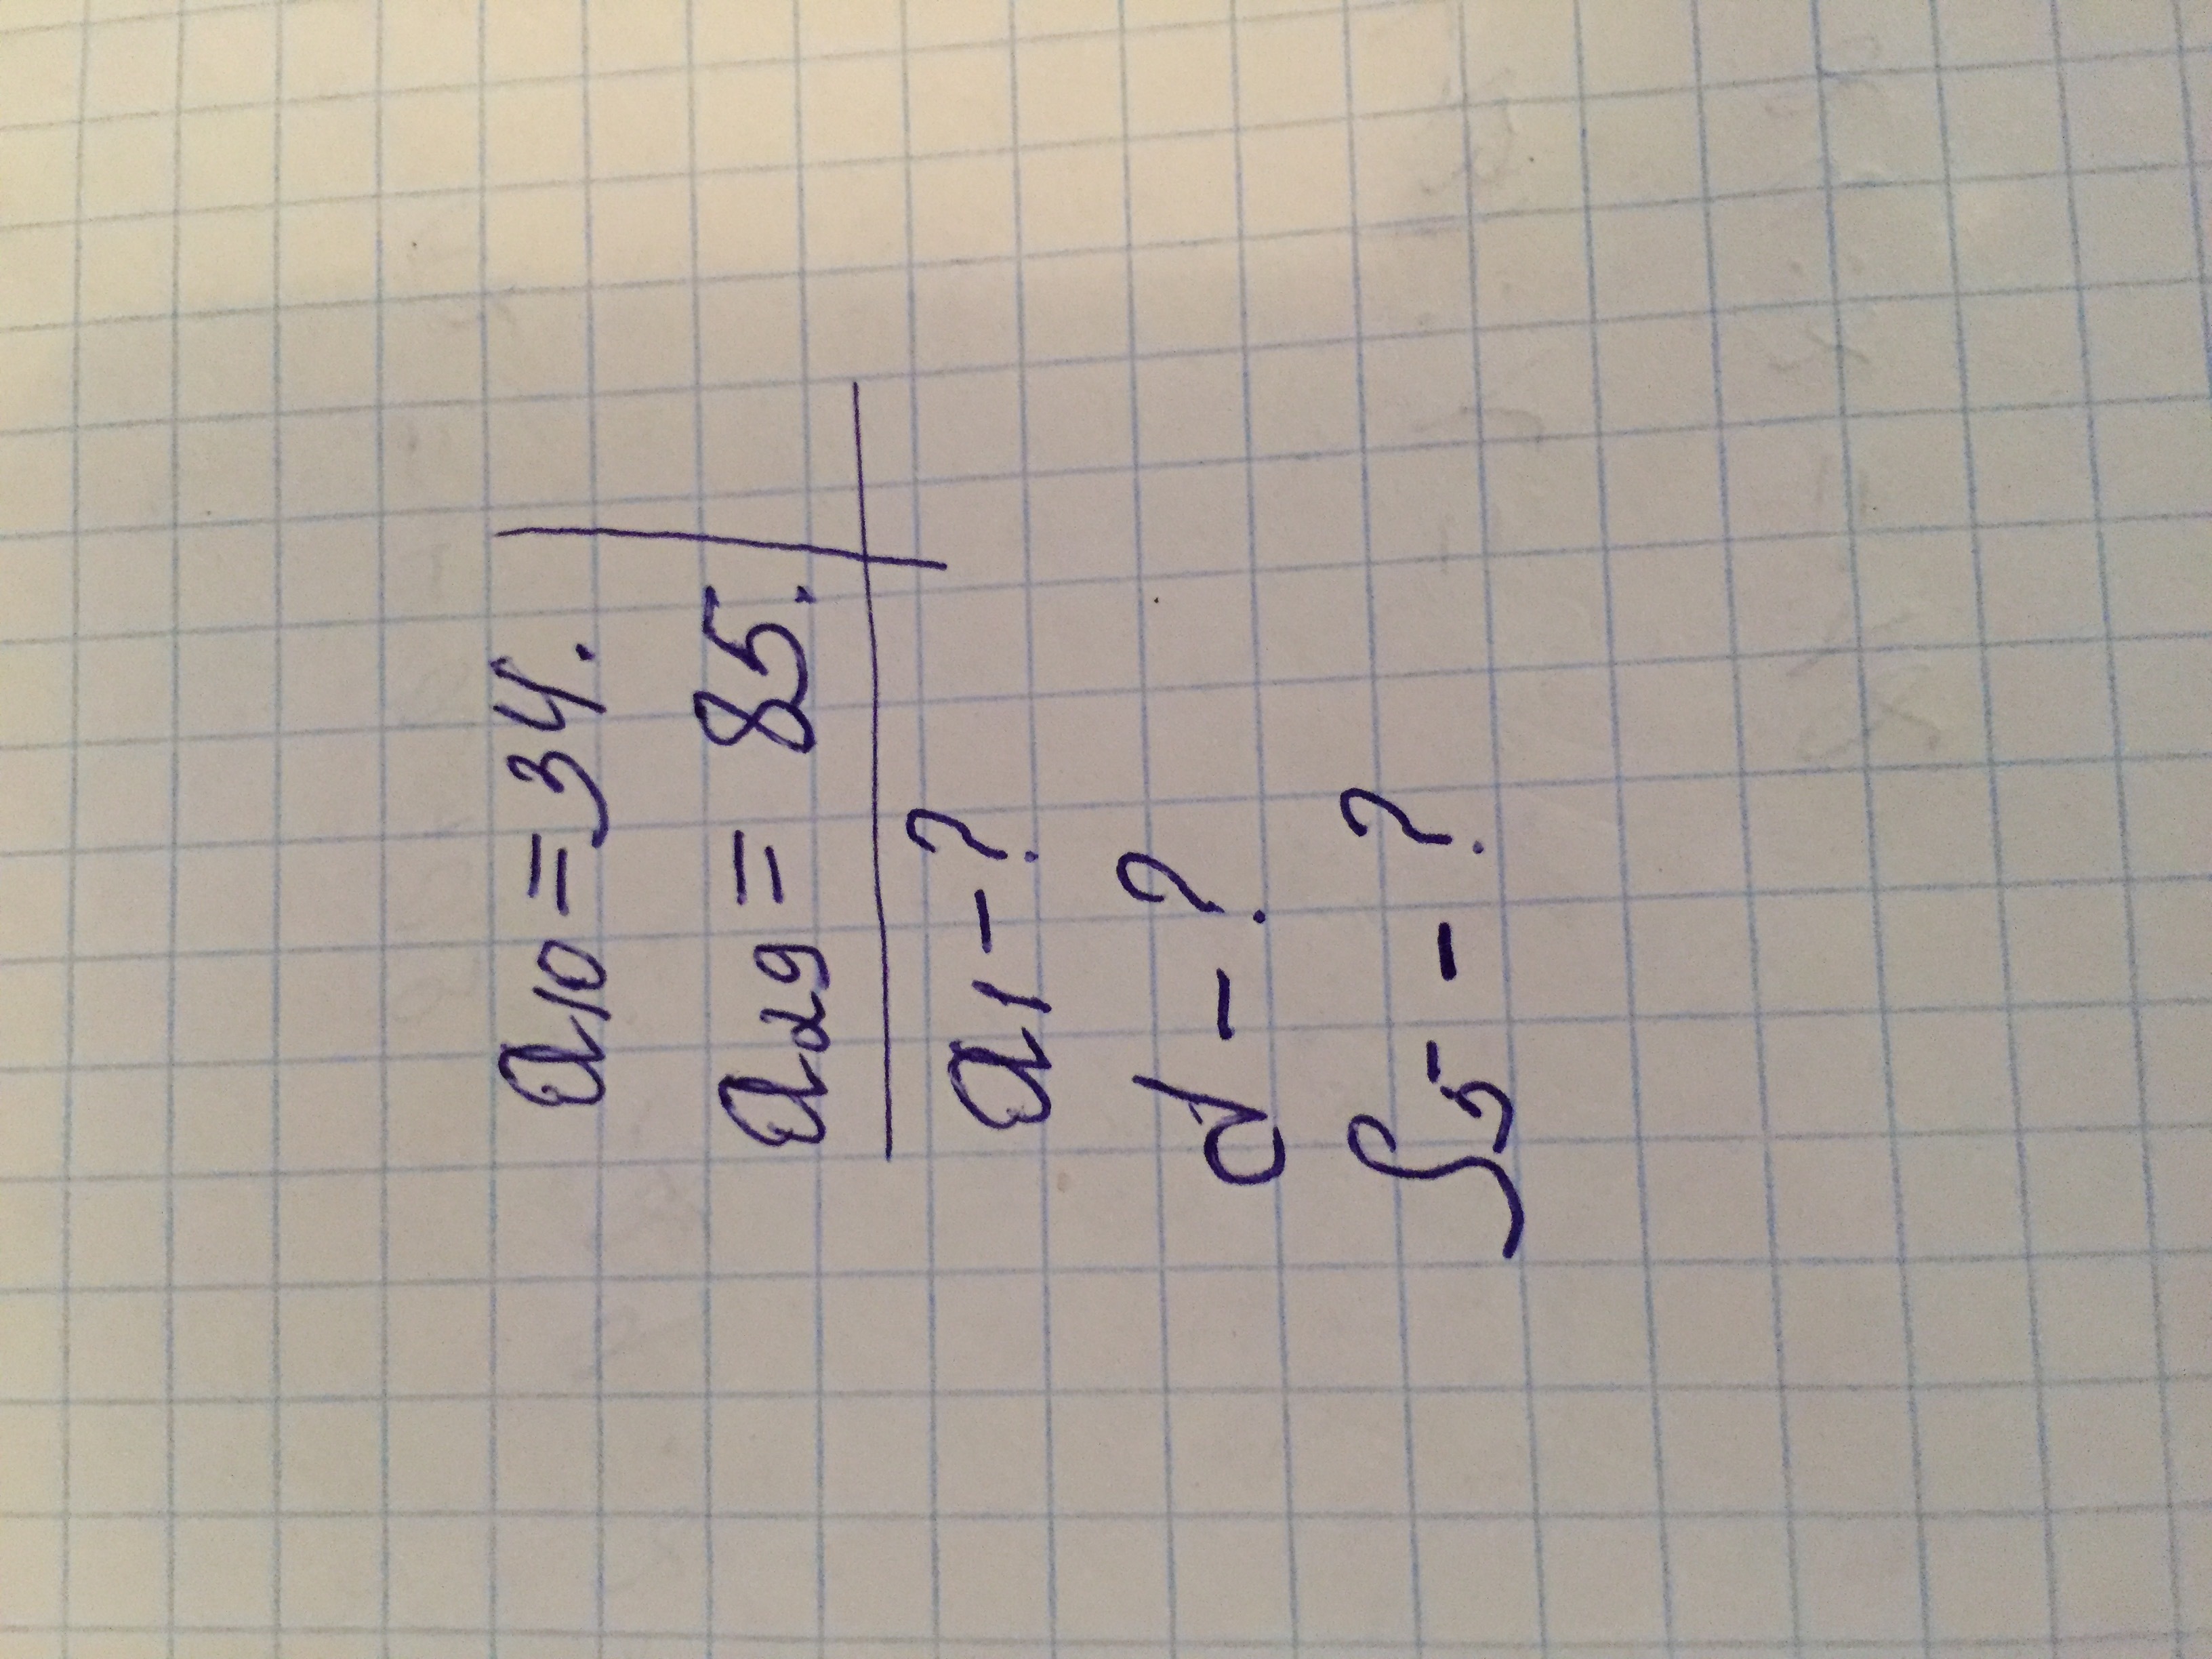 a10 = 34.
a29 = 85.
a1 - ?
d - ?
S5 - ?